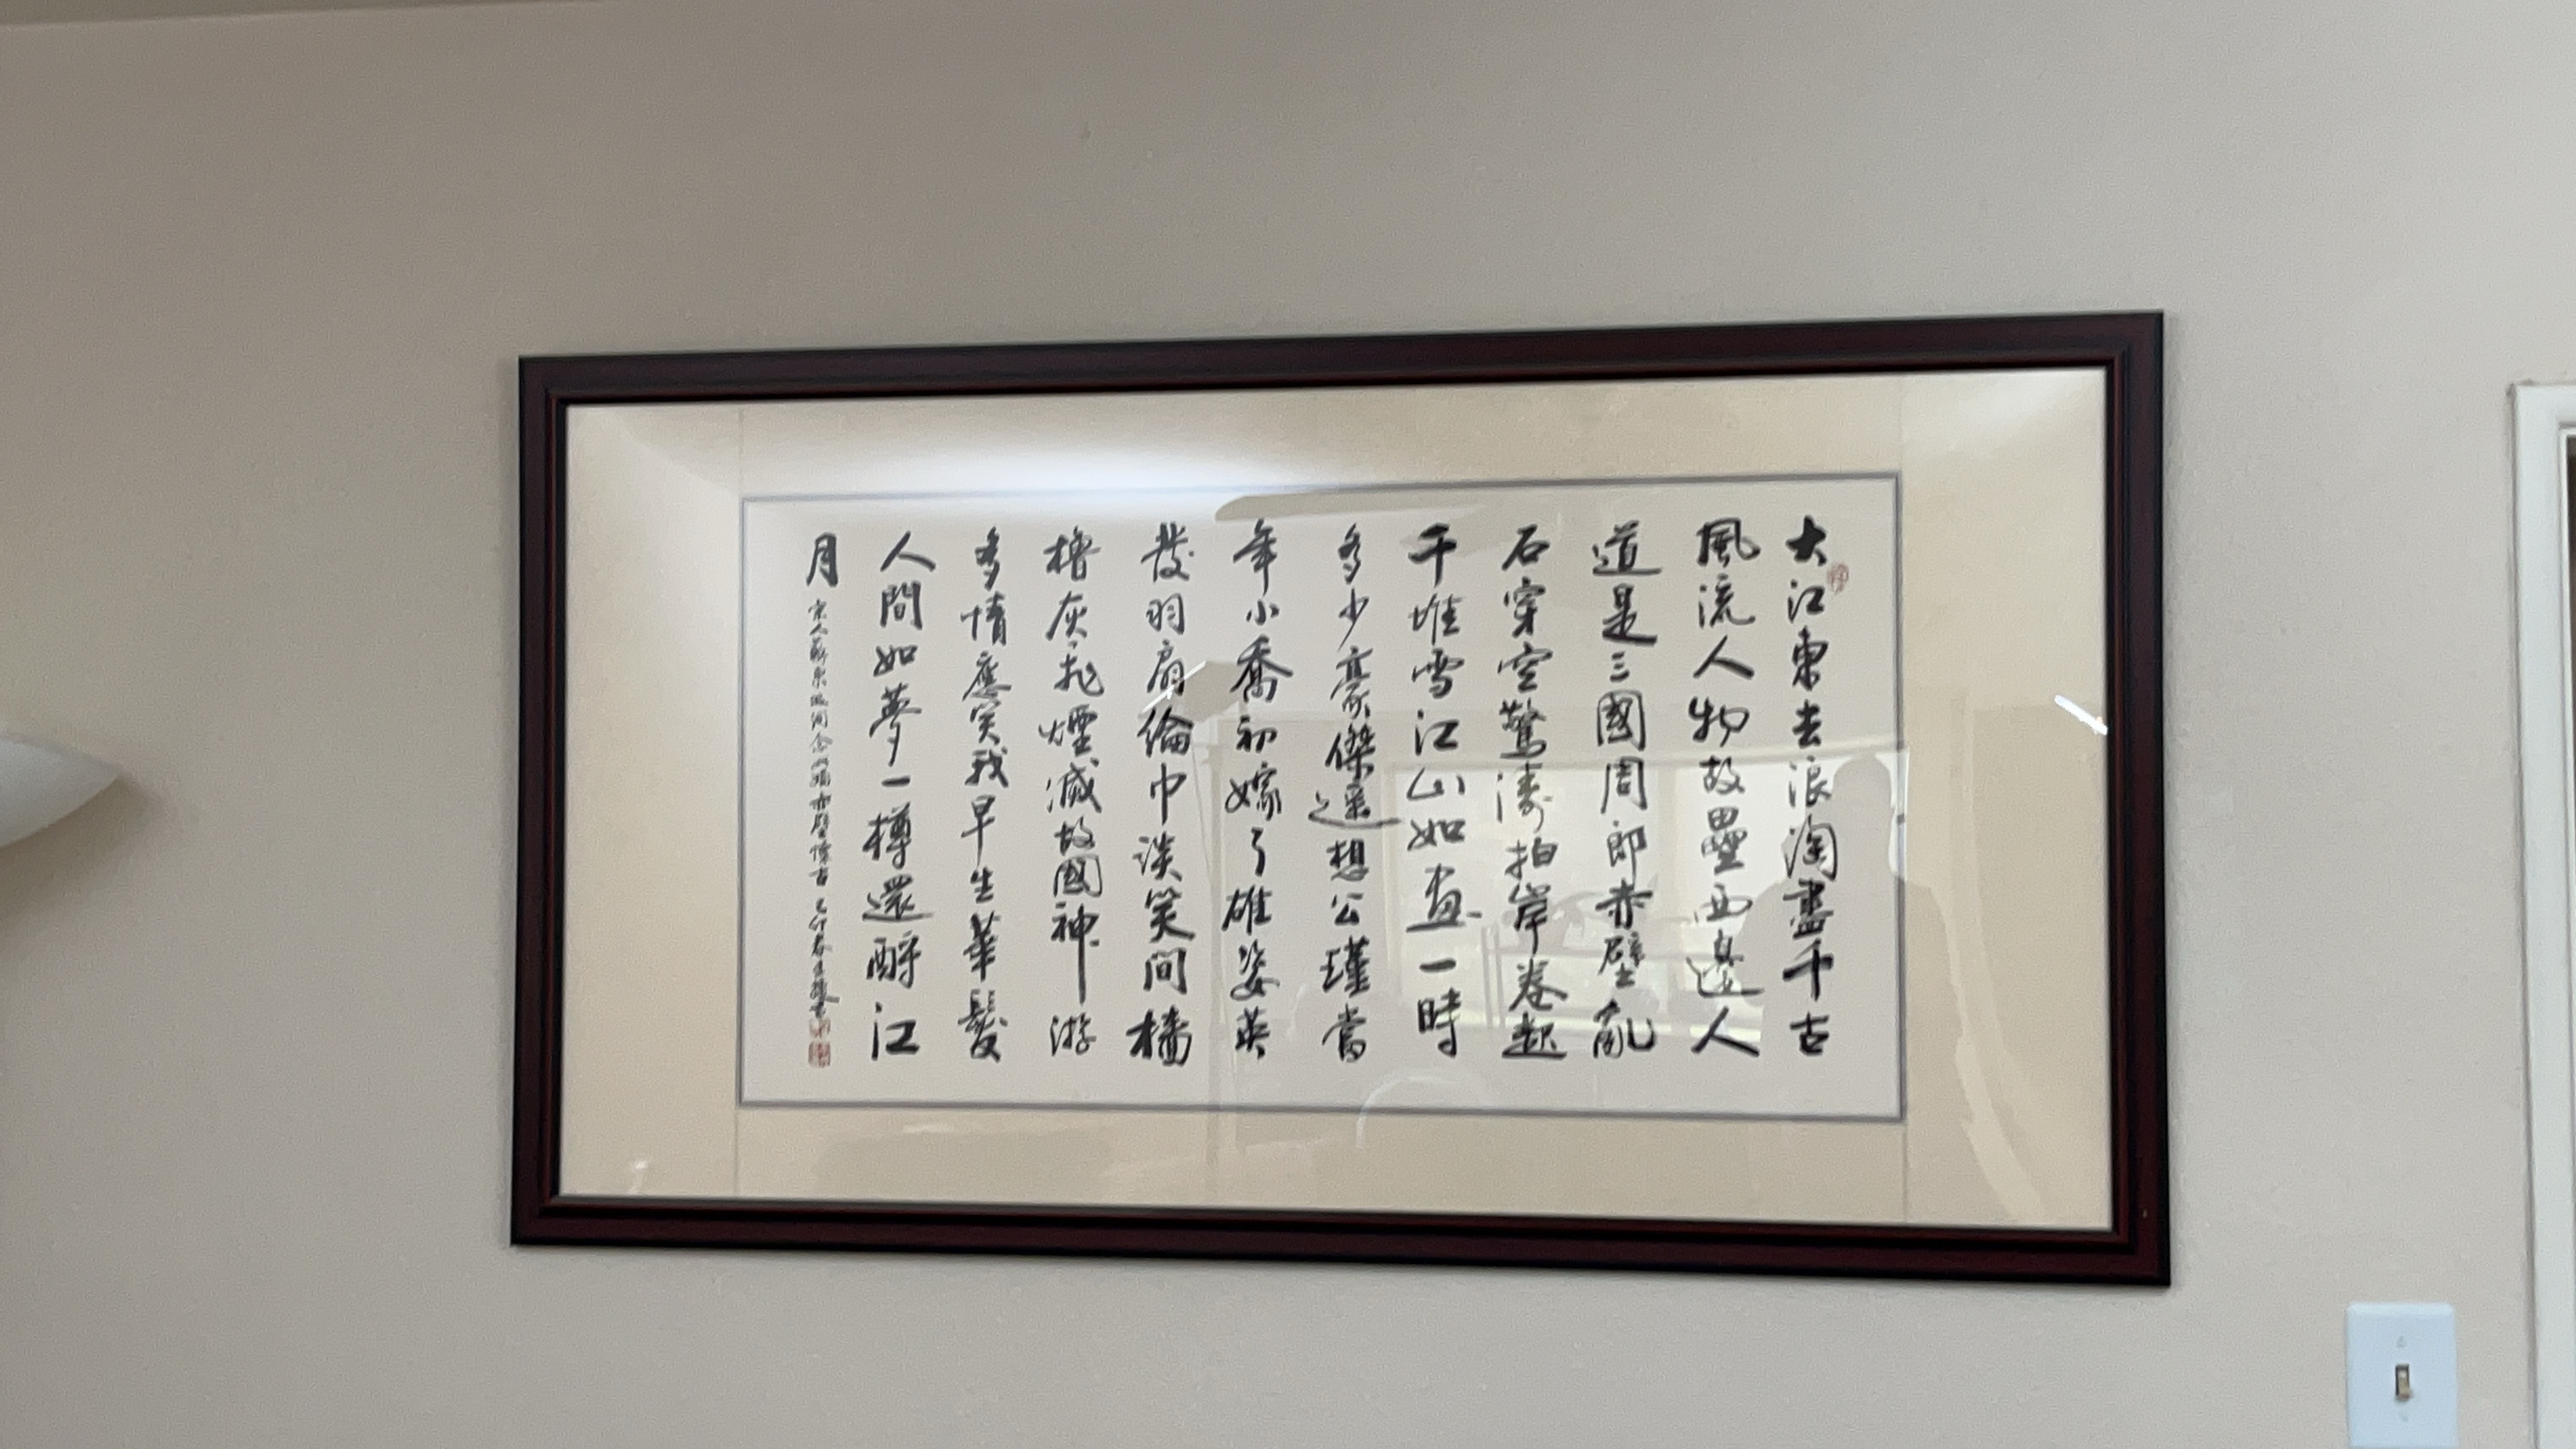 大江東去浪淘盡千古
風流人物故壘西邊人
道是三國周郎赤壁亂
石穿空驚濤拍岸卷起
千堆雪江山如畫一時
多少豪傑遥想公瑾當
年小喬初嫁了雄姿英
發羽扇綸巾談笑間檣
櫓灰飛煙滅故國神游
多情應笑我早生華髮
人間如夢一樽還酹江
月
宋人蘇東坡詞念奴嬌赤壁懷古 己卯春